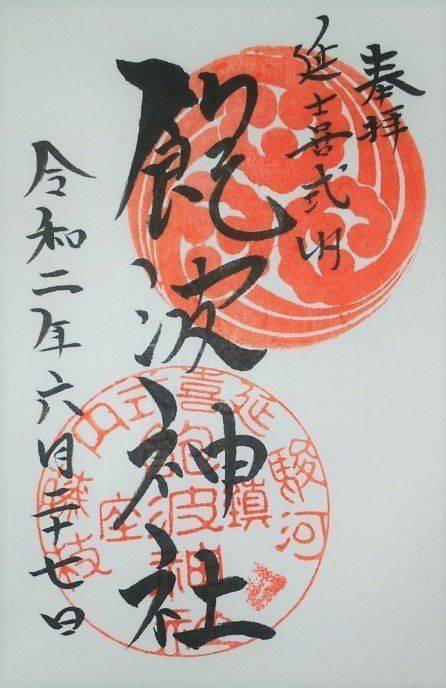 奉拝
延喜式内
飽波神社
令和二年六月二十七日
延喜式内
駿河
藤枝
鎮座
飽波神社